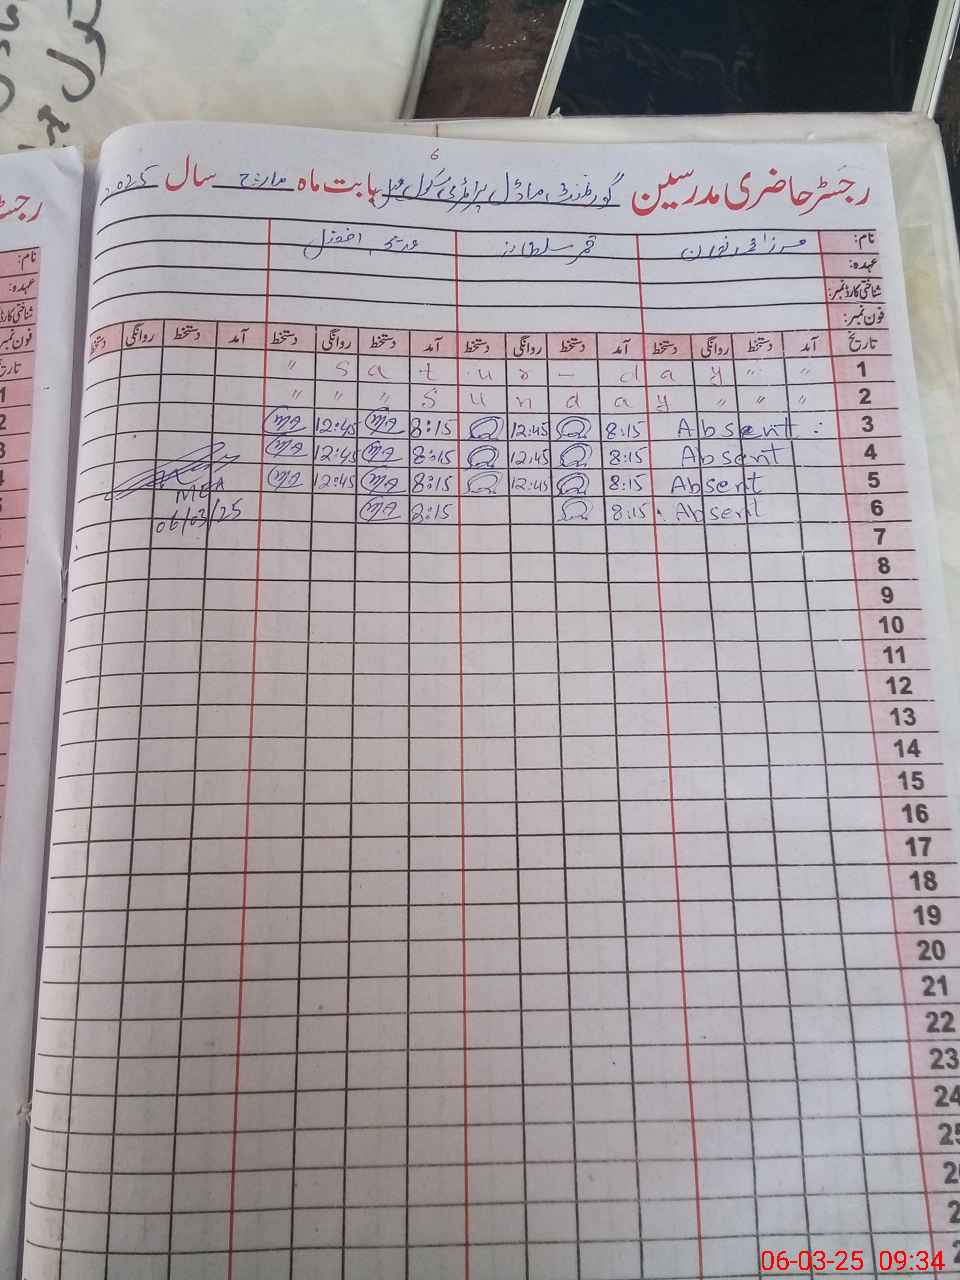 6
رجسٹر حاضری مدرسین گورنمنٹ ماڈل پرائمری سکول بابت ماہ مارچ سال 2025
نام: قمر سلطانہ
عہدہ:
شناختی کارڈ نمبر:
فون نمبر:
تاریخ آمد دستخط روانگی دستخط آمد دستخط روانگی دستخط آمد دستخط روانگی دستخط آمد دستخط روانگی دستخط
1 " S a t u r - d a y " "
2 " " " S u n d a y " " "
3 12:45 8:15 12:45 8:15 Absent
4 12:45 8:15 12:45 8:15 Absent
5 12:45 8:15 12:45 8:15 Absent
MEA
6 06/03/25 8:15 8:15 Absent
7
8
9
10
11
12
13
14
15
16
17
18
19
20
21
22
23
24
25
06-03-25 09:34